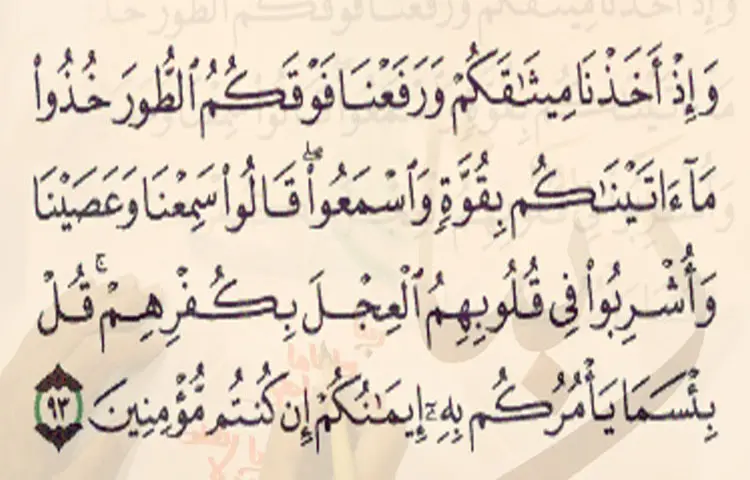 وَإِذْ أَخَذْنَا مِيثَٰقَكُمْ وَرَفَعْنَا فَوْقَكُمُ ٱلطُّورَ خُذُوا۟
مَآ ءَاتَيْنَٰكُم بِقُوَّةٍ وَٱسْمَعُوا۟ ۖ قَالُوا۟ سَمِعْنَا وَعَصَيْنَا
وَأُشْرِبُوا۟ فِى قُلُوبِهِمُ ٱلْعِجْلَ بِكُفْرِهِمْ ۚ قُلْ
بِئْسَمَا يَأْمُرُكُم بِهِۦٓ إِيمَٰنُكُمْ إِن كُنتُم مُّؤْمِنِينَ ٩٣